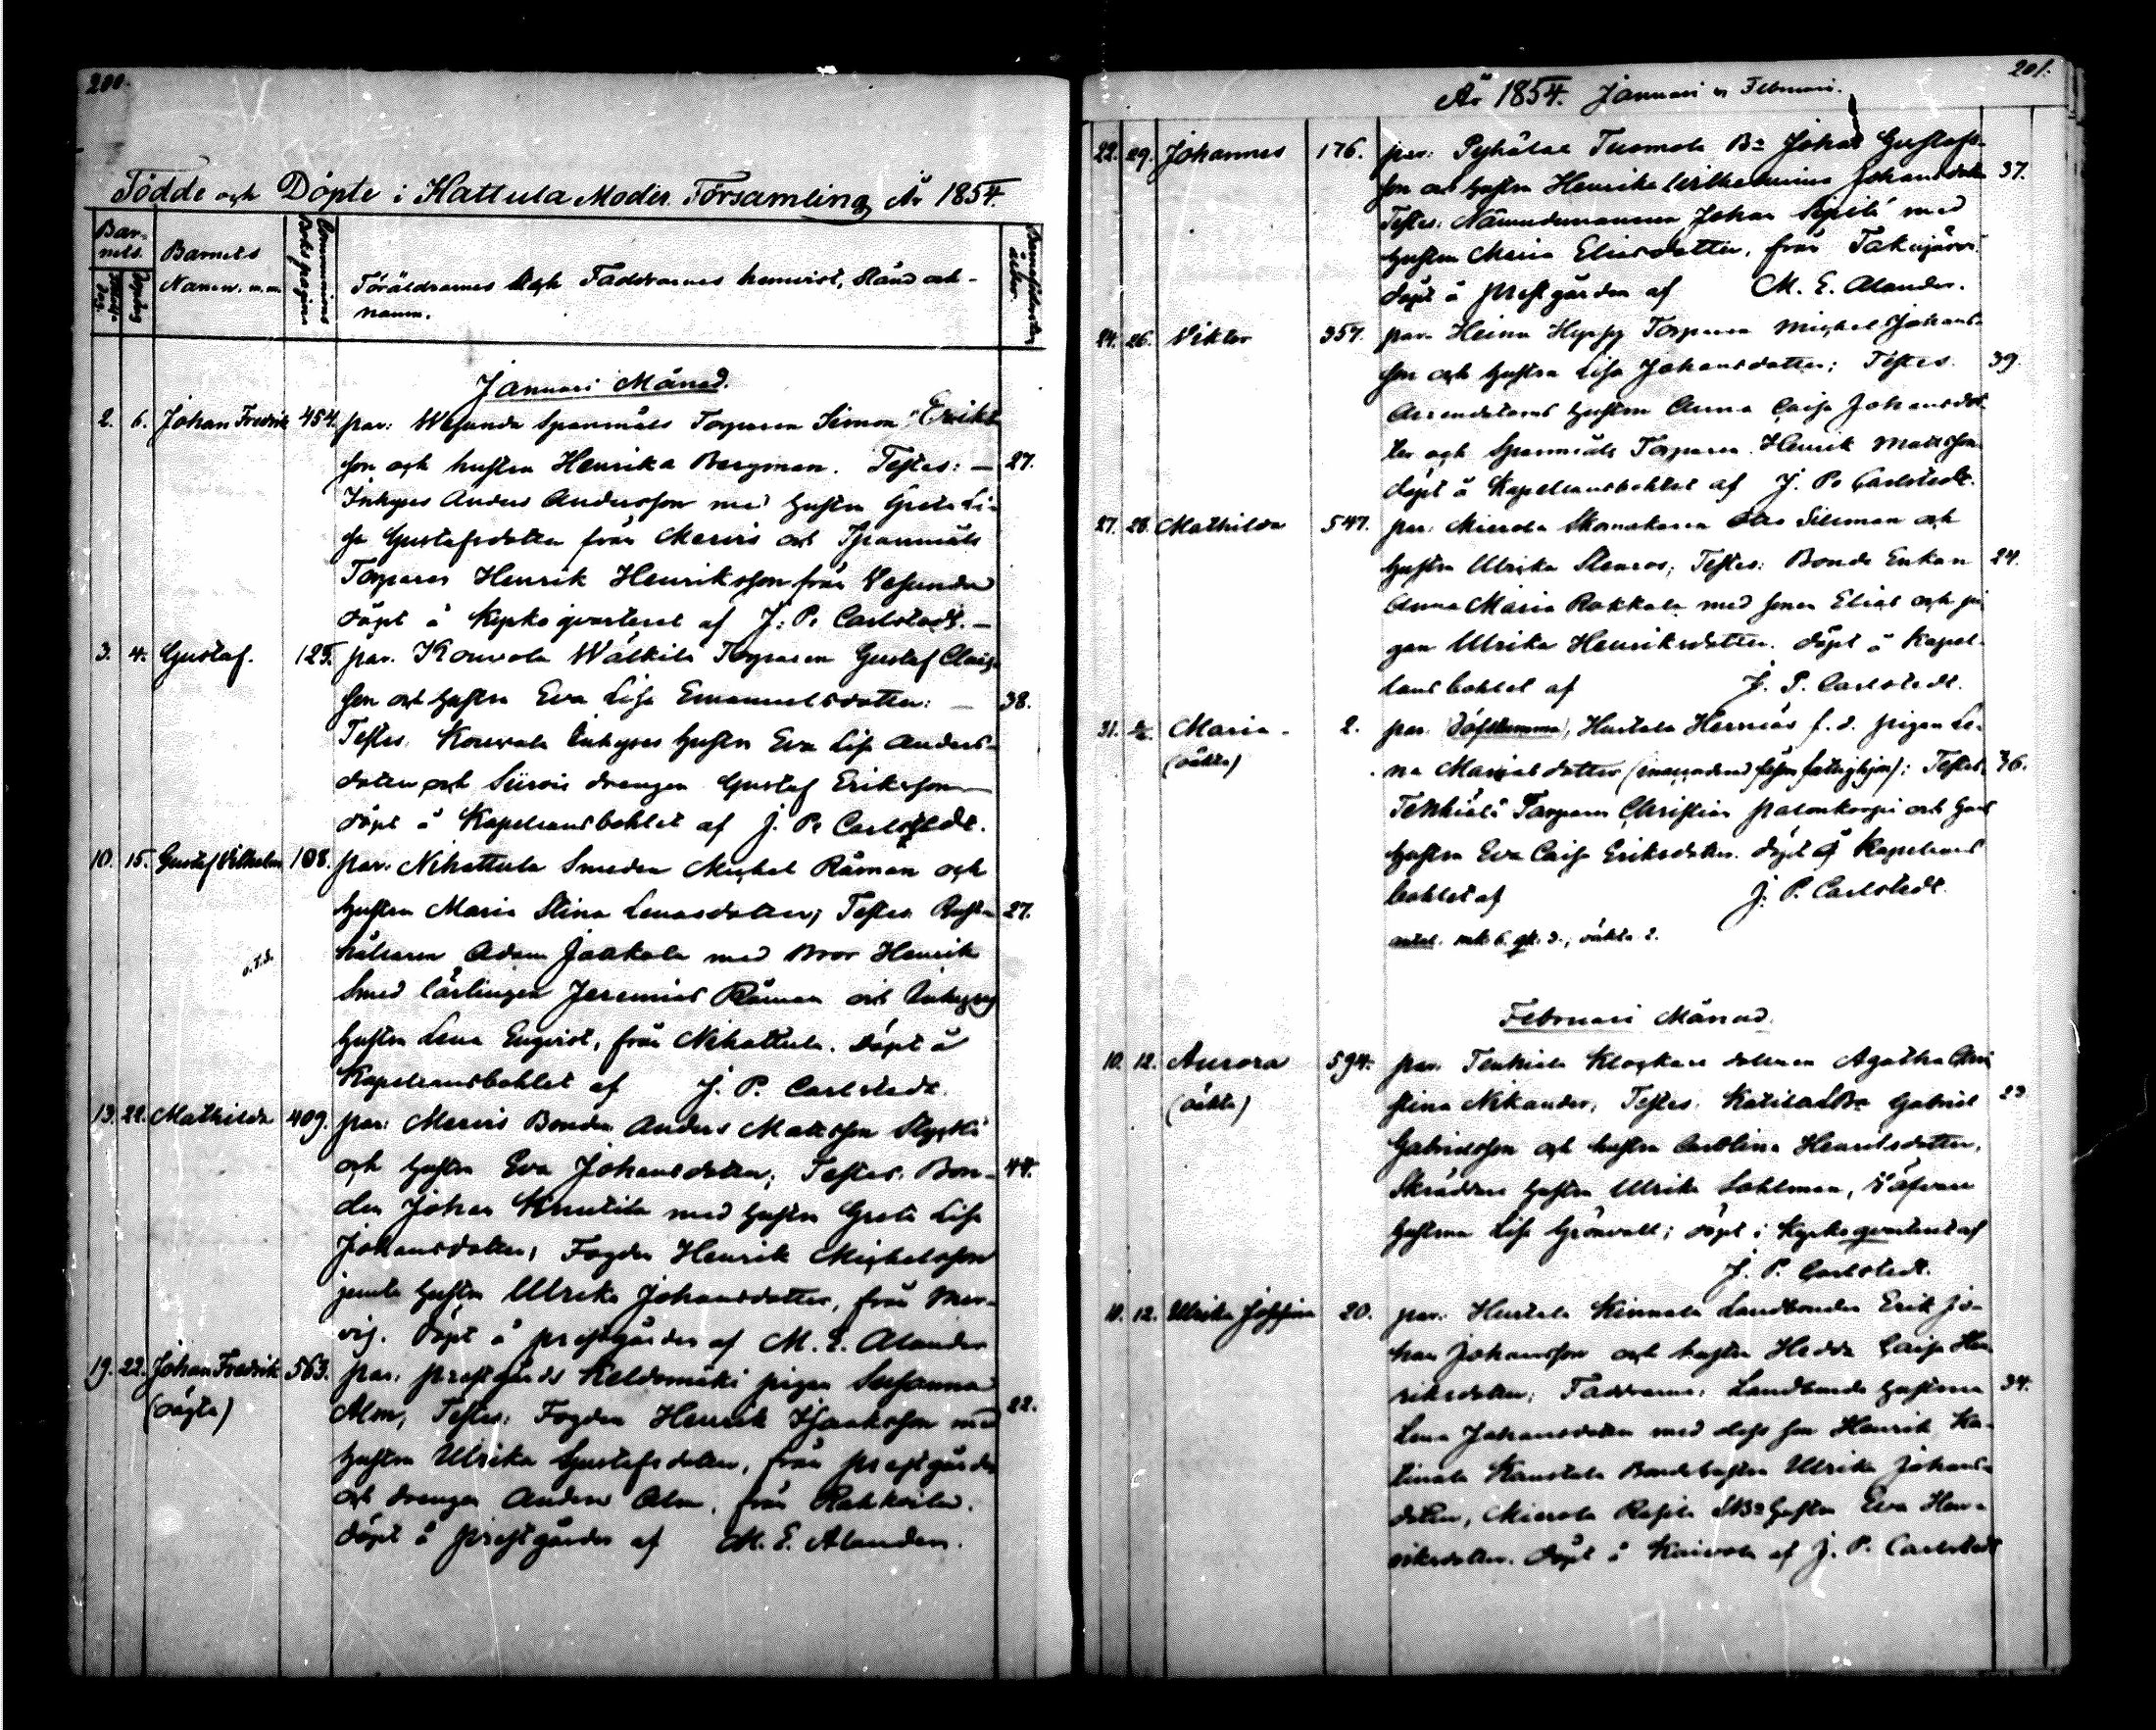 200.
Födde och Döpte i Hattula Moder Församling År 1854.
Bar-
nets.
Barnets
Namn. m.m.
Communions
Boks paginan
Föräldrarnes och Faddrarnes hemvist, stånd och
namn.
Januari Månad.
2. 6. Johan Fredrik 454. par: Wesunda Spanmåls Torparen Simon Eriks
son och hustru Henrika Bergman. Testes: — 27.
Inhyses Anders Andersson med hustru Greta Li-
sa Gustafsdotter från Mervis och Spanmåls
Torparen Henrik Henriksson från Vesunda
döpt å Kyrkoqvarteret af J. P. Carlstedt. —
3. 4. Gustaf. 125. par. Konvola Wälkilä Torparen Gustaf Claës
son och hustru Eva Lisa Emanuelsdotter: — 38.
Testes. Konvola Inhyses hustru Eva Lisa Anders-
dotter och Siirois drengen Gustaf Eriksson —
döpt å Kapellansbohlet af J. P. Carlstedt.
10. 15. Gustaf Vilhelm 108. par. Nihattula Smeden Michel Råman och
hustru Maria Stina Lenasdotter; Testes Rust- 27.
hållaren Adam Jaakola med Mor Henrik
Smed Lärlingen Jeremias Råman och Inhyses
hustru Lena Enqvist, från Nihattula. Döpt å
Kapellansbohlet af J. P. Carlstedt.
13. 22. Mathilda 409. par: Mervis Bonden Anders Mattsson
och hustru Eva Johansdotter; Testes. Bon- 44.
den Johan Knuutila med hustru Greta Lisa
Johansdotter, Fogden Henrik Michelsson
jemte hustru Ulrika Johansdotter, från Mer-
vis. Döpt å prestgården af M. E. Alander
19. 22. Johan Fredrik 563. par. prestgårds Keldomäki pigan Susanna
(oägta) Alm, Testes: Fogden Henrik Isaaksson med 22.
hustru Ulrika Gustafsdotter, från prestgården
och drengen Anders Alm, från Rahkoila.
döpt å prestgården af M. E. Alander.
201.
År 1854. Januari o Februari.
22. 29. Johannes 176. par: Pyhälax Tuomola Bn Johan Gustafs-
son och hustru Henrika Wilhelmina Johansdotter 37.
Testes: Nämndemannen Johan Sipilä med
hustru Maria Eliasdotter, från Takajärvi.
döpt å prestgården af M. E. Alander.
24. 26. Viktor 357. par. Heinu Hyppy Torparen Michel Johans-
son och hustru Lisa Johansdotter; Testes. 39.
Arrendatorns hustru Anna Caisa Johansdot-
ter och Spanmåls Torparen Henrik Mattsson
döpt å Kapellansbohlet af J. P. Carlstedt.
27. 28. Mathilda 547. par: Mierola Skomakaren Otto Sileman och
hustru Ulrika Stenros; Testes: Bonde Enkan 24.
Anna Maria Rokkala med sonen Elias och pi
gan Ulrika Henriksdotter. döpt å Kapel-
lansbohlet af J. P. Carlstedt.
31. 2/2. Maria - 2. par. Döfstumma, Hurtala Herniäs f. d. pigan Le-
(oäkta) na Mariasdotter : Testes. 36.
Tenhiälä Torparen Christian Palonkorpi och hans
hustru Eva Caisa Eriksdotter. döpt å Kapellans
bohlet af J. P. Carlstedt.
antal. mk 6. qk. 3.; oäkta 2.
Februari Månad.
10. 12. Aurora 594. par. Tenhiälä Klockare dottren Agatha Chri
(oäkta) stina Nikander; Testes. Katila Bn Gabriel 23
Gabrielsson och hustru Carolina Henriksdotter,
Skräddare hustru Ulrika Sohlman,
hustrun Lisa Grönvall; döpt i Kyrkoqvarteret af
J. P. Carlstedt.
10. 12. Ulrika Josefina 20. par. Hurtala Kinnala Landbonden Erik Jo-
han Johansson och hustru Hedda Caisa Hen
riksdotter; Faddrarne: Landbonde hustrun 34.
Lena Johansdotter med dess son Henrik Ka-
Bondehustru Ulrika Johans-
dotter, Mierola Bn hustru Eva Hen-
riksdotter. Döpt å Kaivola af J. P. Carlstedt